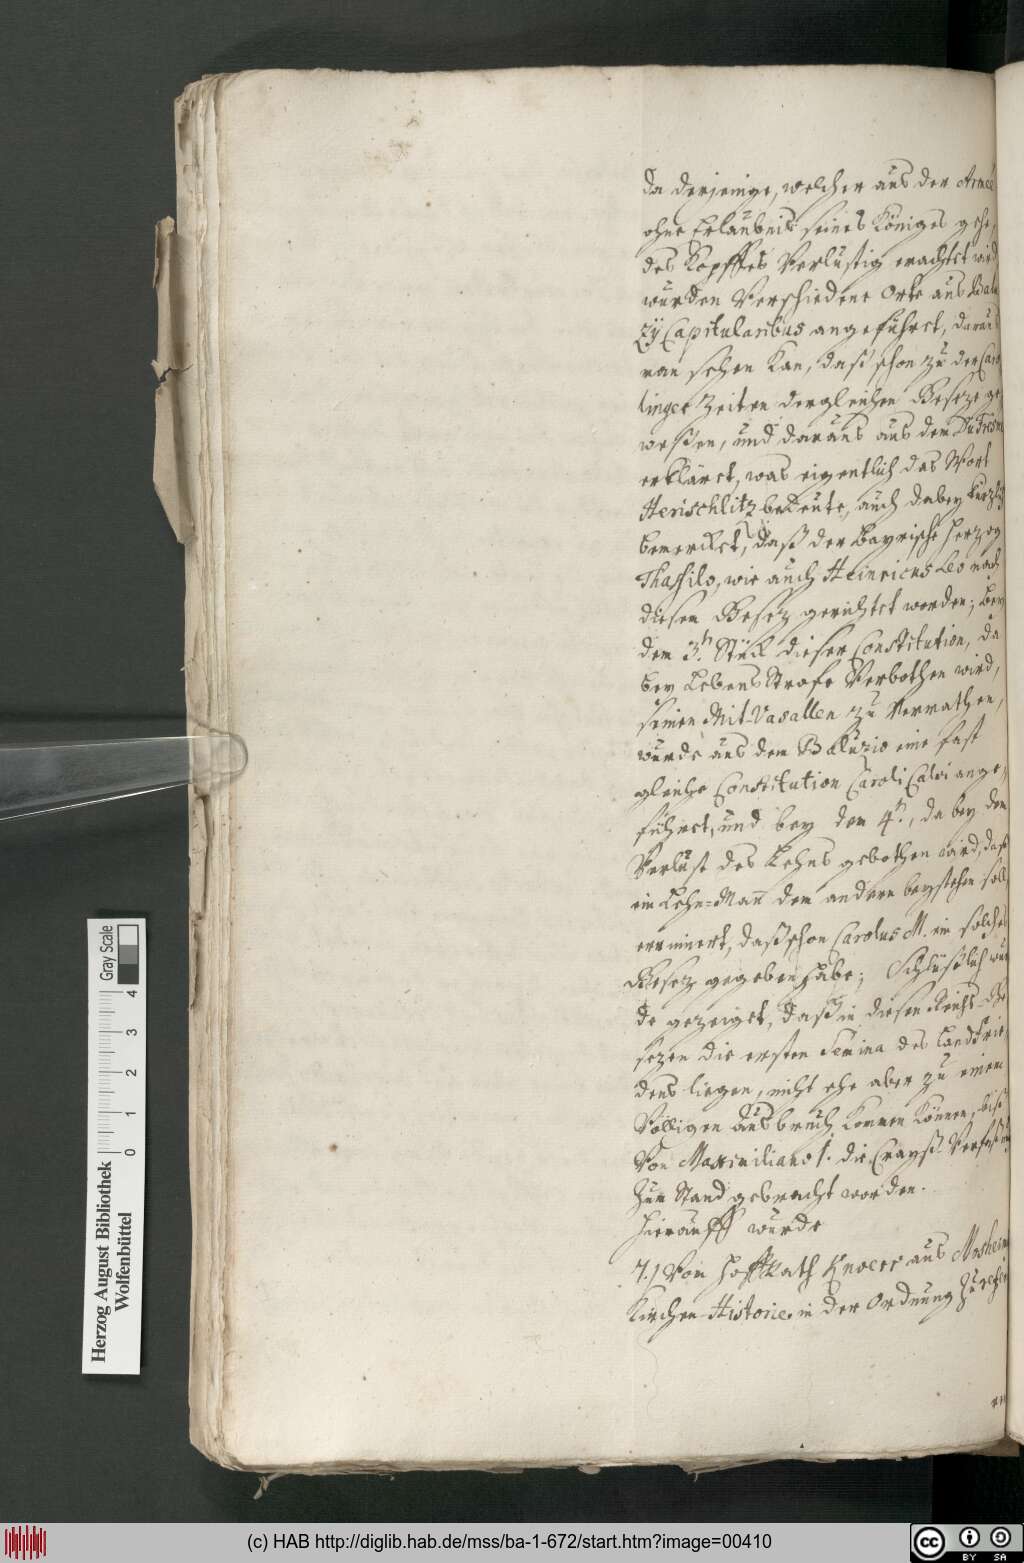 da derjenige, welcher aus der Armée
ohne Erlaubnis seines Königes gehe,
des Kopffes verlustig erachtet wird
wurden verschiedene Orte aus Balu
zÿ Capitularibus angeführet, daraus
man sehen kan, daß schon zu der Caro
linger Zeiten dergleichen Geseze ge
weßen, und daraus aus dem Du Fresne
erkläret, was eigentlich das Wort
Herischlitz bedeute, auch dabey kurzl.
bemercket, daß der Bayrische Herzog
Thassilo, wie auch Heinricus Leo nach
diesem Gesez gerichtet worden; bey
dem 3.n Stük dieser Constitution, da
bey Lebens Strafe verbothen wird,
seinen Mit-Vasallen zu verrathen,
wurde aus dem Baluzio eine fast
gleiche Constitution Caroli Calvi ange,
führet, und bey dem 4.n, da bey dem
Verlust des Lehns gebothen wird, daß
ein Lehn=Mañ dem andern beystehen soll,
erinnert, daß schon Carolus M. ein solches
Gesez gegeben habe; Schlüßlich wur
de gezeiget, daß in diesen Reichs-Ge
sezen die ersten Semina des Landfrie,
dens liegen, nicht ehe aber zu einem
völligen Ausbruch kommen können, biß
von Maximiliano I. die Crayß-Verfaßung
zum Stand gebracht worden.
Hierauff wurde
7.) Von Hoffrath Knorr aus Mosheims
Kirchen-Historie in der Ordnung
Herzog August Bibliothek
Wolfenbüttel
0 1 2 3 4
Gray Scale
(c) HAB http://diglib.hab.de/mss/ba-1-672/start.htm?image=00410
cc BY SA